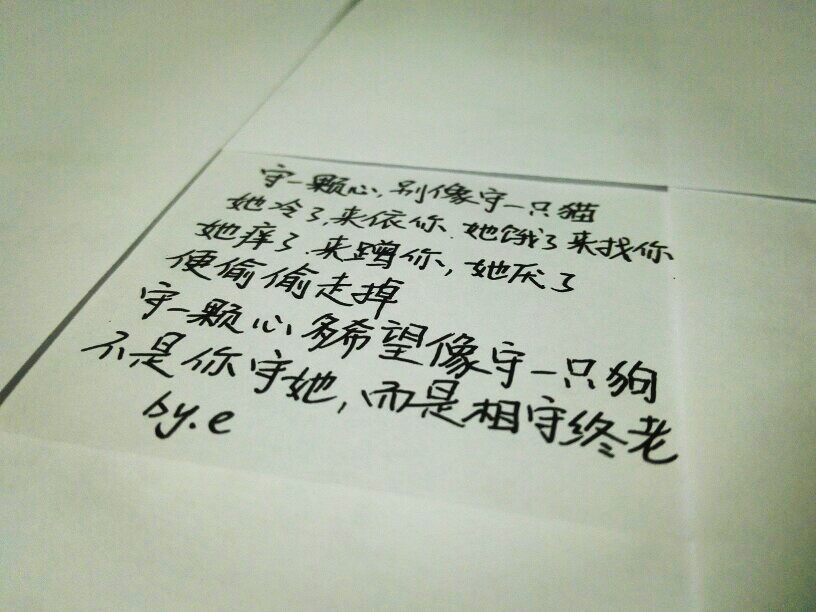 守一颗心,别像守一只猫
她冷了,来依你.她饿了来找你
她痒了.来蹭你,她厌了
便偷偷走掉
守一颗心多希望像守一只狗
不是你守她,而是相守终老
by.e